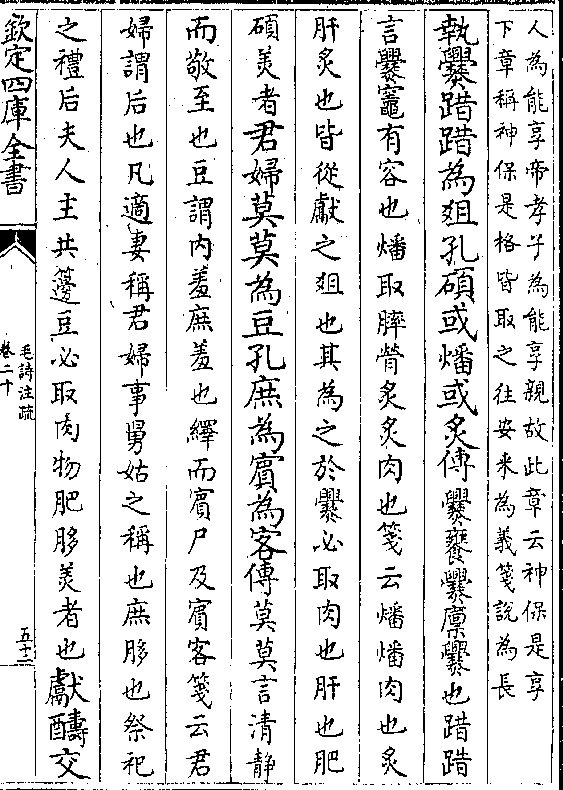 人為能享帝孝子為能享親故此章云神保是享
下章稱神保是格皆取之往安來為義箋說為長
執爨踖踖為俎孔碩或燔或炙傳爨饔爨廩爨也踖踖
言爨竈有容也燔取膟膋炙炙肉也箋云燔燔肉也炙
肝炙也皆從獻之俎也其為之於爨必取肉也肝也肥
碩美者君婦莫莫為豆孔庶為賓為客傳莫莫言清靜
而敬至也豆謂内羞庶羞也繹而賓尸及賓客箋云君
婦謂后也凡適妻稱君婦事舅姑之稱也庶胗也祭祀
之禮后夫人主共籩豆必取肉物肥胗美者也獻醻交
欽定四庫全書
毛詩注疏
卷二十
五十二